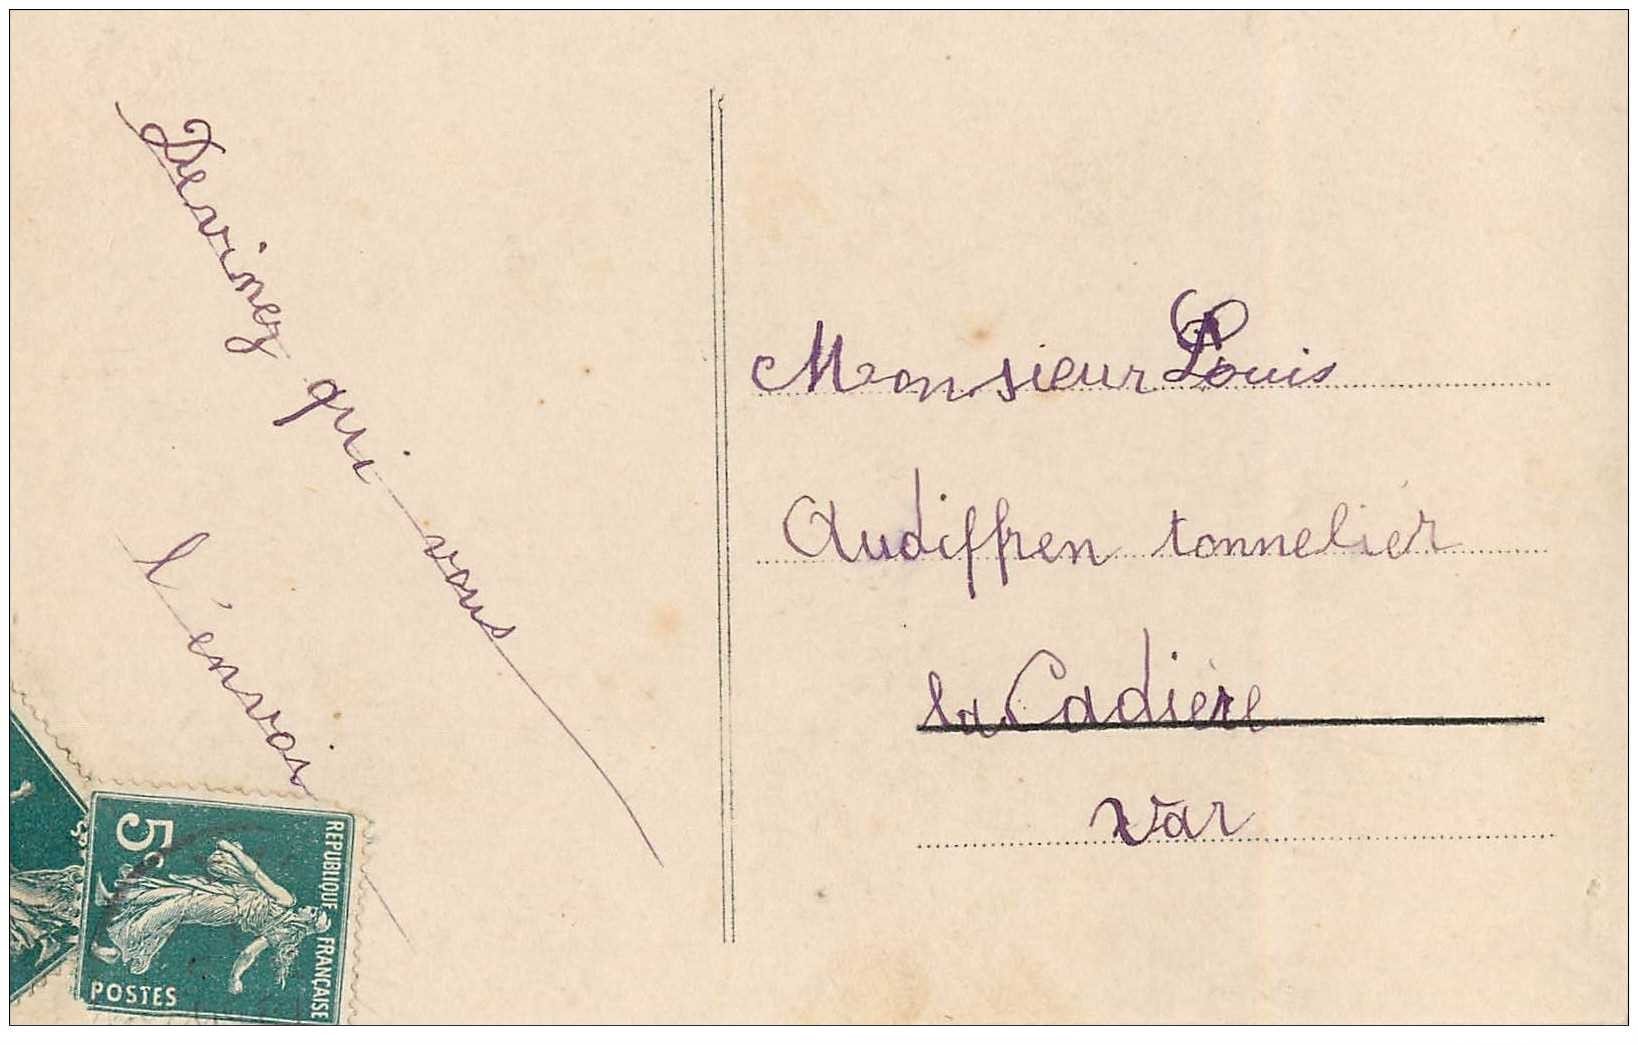 Devinez qui vous
l'envoi
Monsieur Louis
Audiffren tonnelier
la Cadière
Var
5c
REPUBLIQUE FRANÇAISE
POSTES